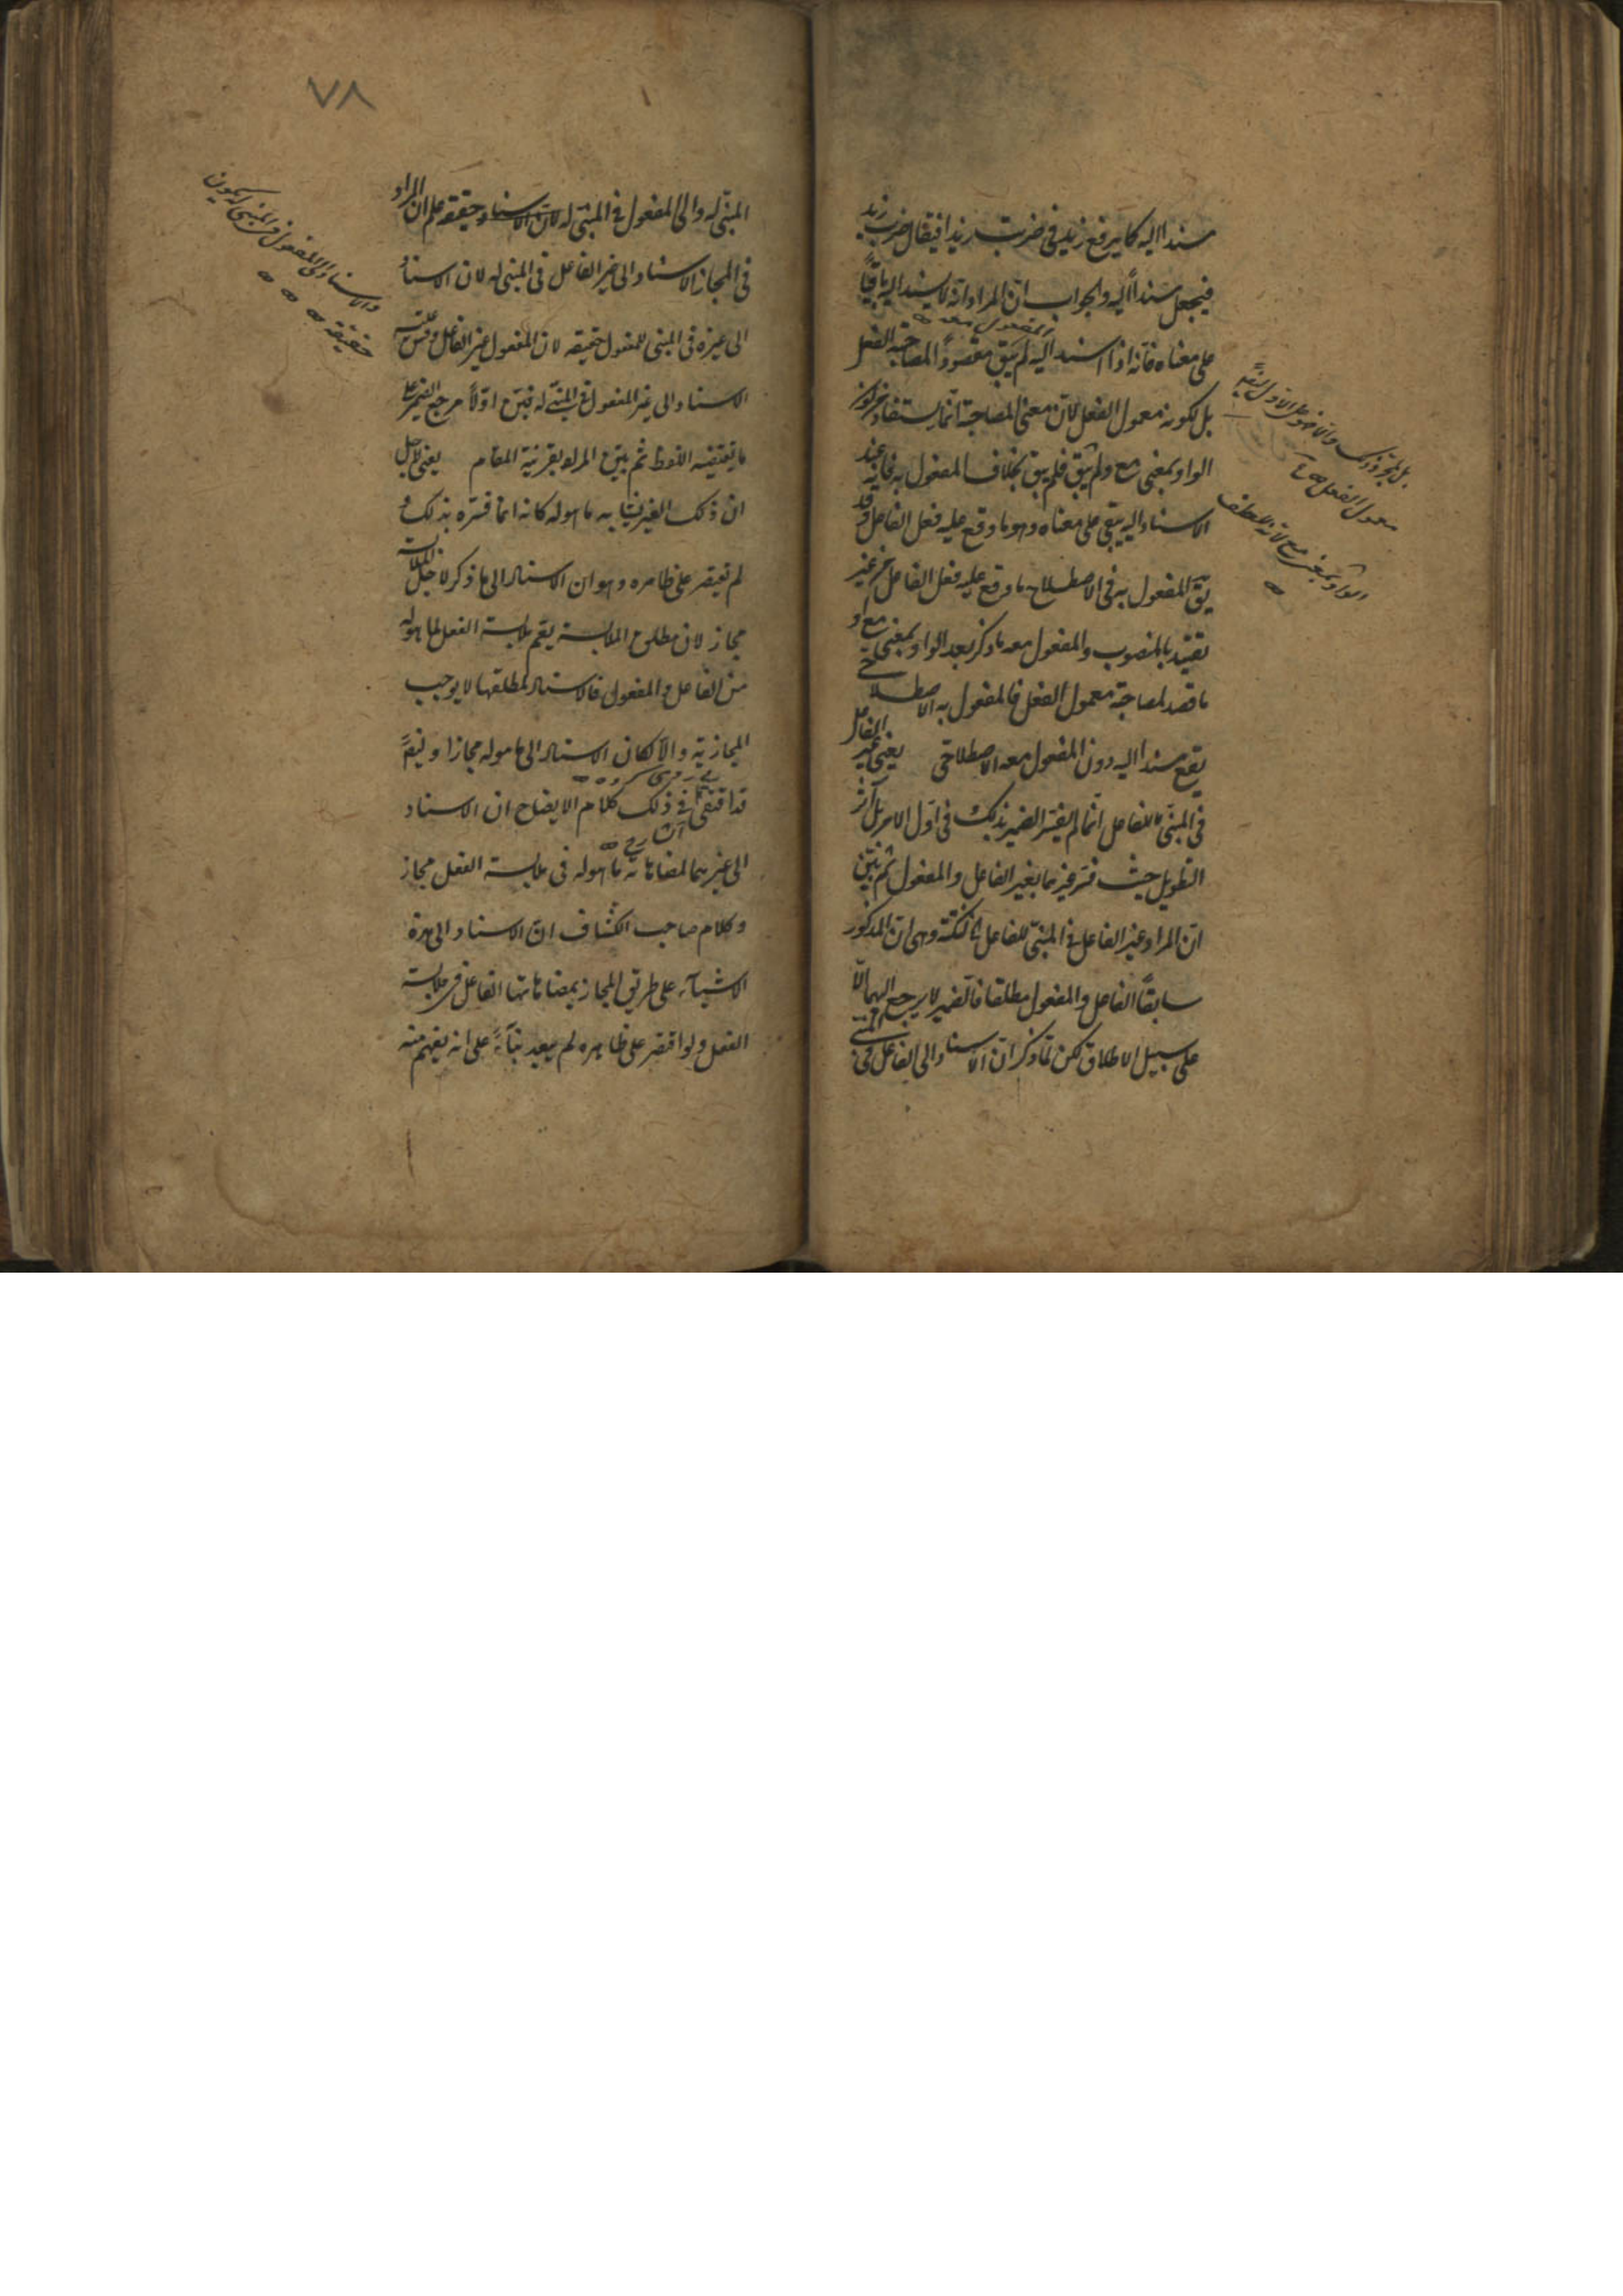 مسندا اليه كما يرفع زيد في ضربت زيدا فيقال ضرب زيد
فيجعل مسنداً اليه والجواب انّ المراد انّه لا يسند اليه باقياً
على معناه فانه اذا اسند اليه لم يبق مقصوداً لمصاحبة الفعل
المفعول معه
بل لكونه معمول الفعل لانّ معنى المصاحبة انّما يستفاد من كون
الواو بمعنى مع ولم يبق فلم يبق بخلاف المفعول به فانه عند
الاسناد اليه يبقى على معناه وهو ما وقع عليه فعل الفاعل وقد
يقّ المفعول به في الاصطلاح ما وقع عليه فعل الفاعل من غير
تقييد بالمنصوب والمفعول معه ما ذكر بعد الواو بمعنى مع و
ما قصد لمصاحبة معمول الفعل فالمفعول به الاصطلاحى
يقع مسندا اليه دون المفعول معه الاصطلاحى يعنى غير الفاعل
في المبنىّ للفاعل انّما لم يفسّر الضمير بذلك في اوّل الامر بل آثر
التطويل حيث فسّر غيرهما بغير الفاعل والمفعول ثم بيّن
انّ المراد غير الفاعل في المبنىّ للفاعل لنكتة وهى انّ المذكور
سابقاً الفاعل والمفعول مطلقا فالضمير لا يرجع اليهما الّا
على سبيل الاطلاق لكن لمّا ذكر انّ الاسناد الى الفاعل في المبنى
معمول الفعل
الواو بمعنى مع لانه للعطف
٧٨
المبنىّ له والى المفعول في المبنىّ له لان الاسناد حقيقة علم ان المراد
في المجاز الاسناد الى غير الفاعل في المبنى له لان الاسناد
الى غيره في المبنى للمفعول حقيقه لان المفعول غير الفاعل وقس عليه
الاسناد الى غير المفعول في المبنىّ له فبيّن اوّلاً مرجع الضمير على
ما يقتضيه اللفظ ثم بيّن المراد بقرينة المقام يعنى لاجل
ان ذلك الغير يشابه ما هو له كانه انما فسّره بذلك و
لم يقتصر على ظاهره وهو ان الاسناد الى ما ذكر لاجل الملابسة
مجاز لان مطلق الملابسة يعمّ ملابسة الفعل لما هو له
من الفاعل والمفعول فالاسناد لمطلقها لا يوجب
المجازية والا لكان الاسناد الى ما هو له مجازا وليضاً
قد اقتفى في ذلك كلام الايضاح ان الاسناد
الى غيرهما لمضاهاته ما هو له في ملابسة الفعل مجاز
وكلام صاحب الكشّاف انّ الاسناد الى هذه
الاشيآء على طريق المجاز بمضاهاتها الفاعل في ملابسة
الفعل ولو اقتصر على ظاهره لم يبعد بنآءً على انه يفهم منه
والاسناد الى المفعول في المبنى له يكون
حقيقة